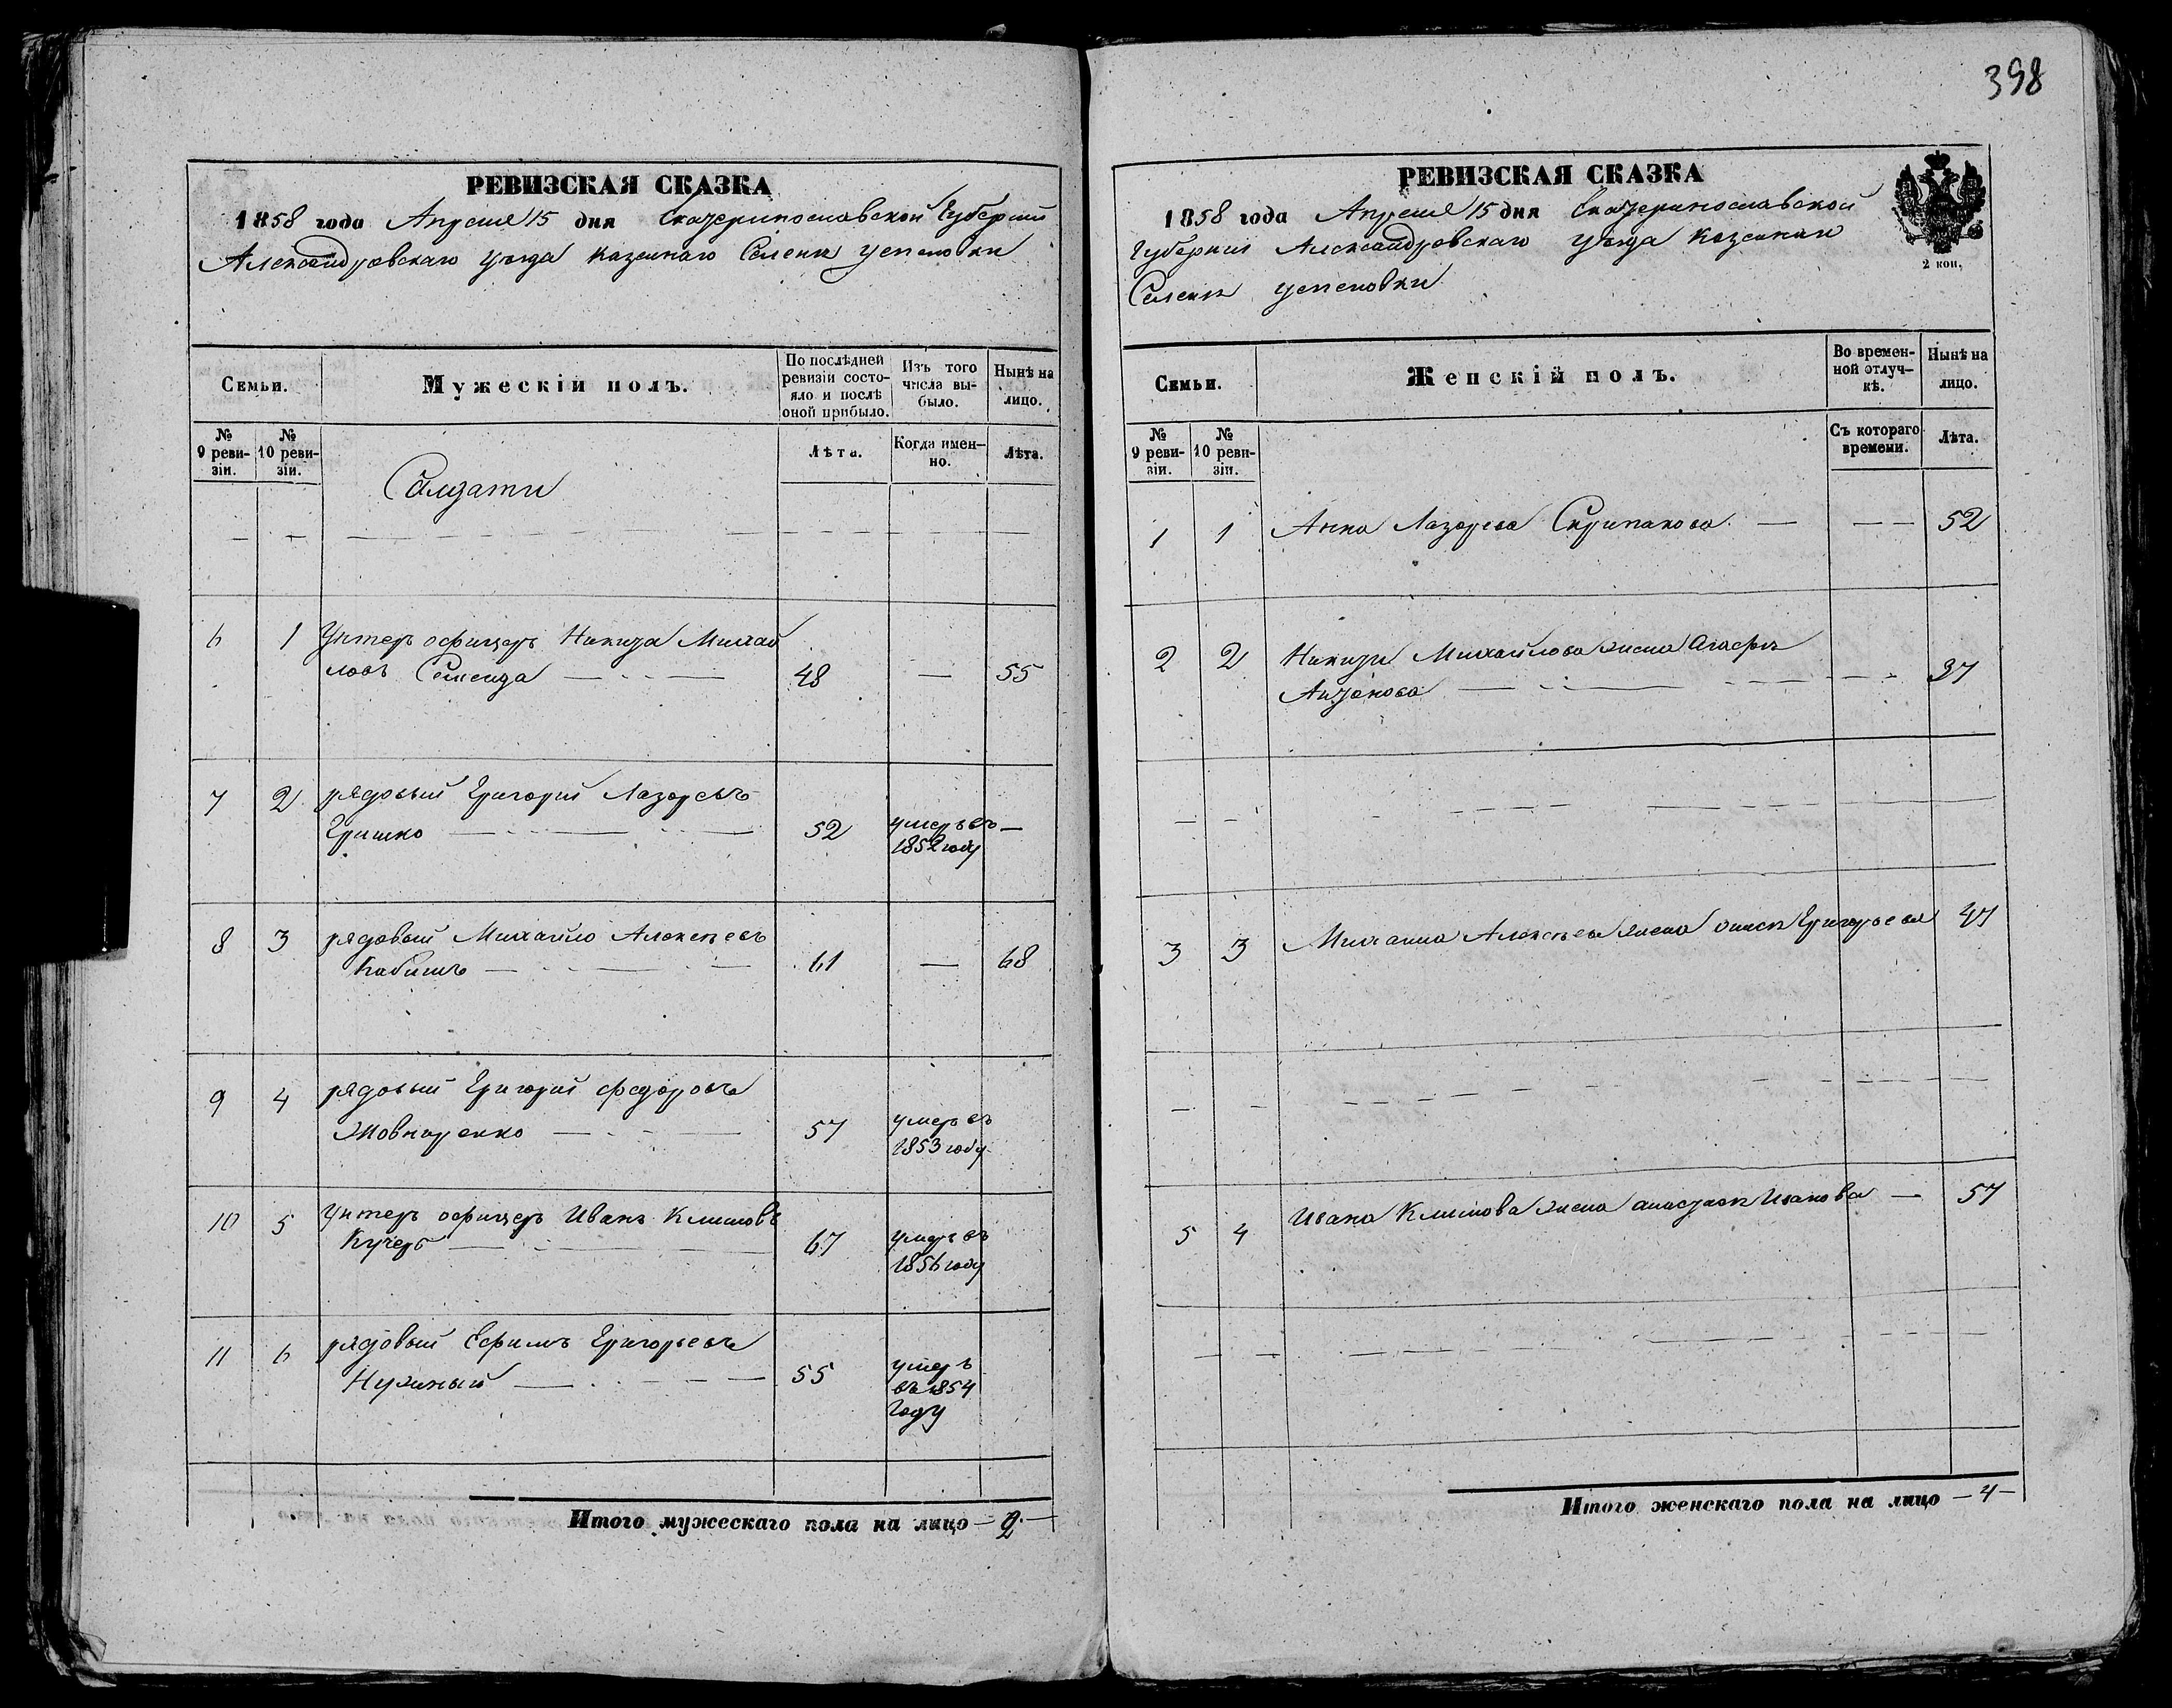 398
РЕВИЗСКАЯ СКАЗКА
1858 года Апреля 15 дня Екатеринославской Губерніи
Александровскаго уѣзда Казеннаго Селенія Успеновки
Семьи.
Мужескій полъ.
По послѣдней ревизіи состояло и послѣ оной прибыло.
Изъ того числа выбыло.
Нынѣ на лицо.
№ 9 ревизіи.
№ 10 ревизіи.
Лѣта.
Когда именно.
Лѣта.
Солдати
6 1 Унтеръ офицеръ Никита Михай
ловъ Семенда 48 — 55
7 2 рядовый Григорій Лазоревъ
Гришко 52 умеръ въ —
1852 году
8 3 рядовый Михайло Алексѣевъ
Кабишъ 61 — 68
9 4 рядовый Григорій Федоровъ
Жовниренко 57 умеръ въ
1853 году
10 5 Унтеръ офицеръ Иванъ Климовъ
Кучеръ 67 умеръ въ
1856 году
11 6 рядовый Ефимъ Григорьевъ
Нужный 55 умеръ
въ 1854
году
Итого мужескаго пола на лицо — 2 —
РЕВИЗСКАЯ СКАЗКА
2 коп.
1858 года Апреля 15 дня Екатеринославской
Губерніи Александровскаго уѣзда Казеннаго
Селенія Успеновки
Семьи.
Женскій полъ.
Во временной отлучкѣ.
Нынѣ на лицо.
№ 9 ревизіи.
№ 10 ревизіи.
Съ котораго времени.
Лѣта.
1 1 Анна Лазорева Скрипакова — — — 52
2 2 Никиты Михайлова жена Агафія
Антонова 37
3 3 Михайла Алексѣева жена Григорьева 47
5 4 Ивана Климова жена Иванова — 57
Итого женскаго пола на лицо — 4 —